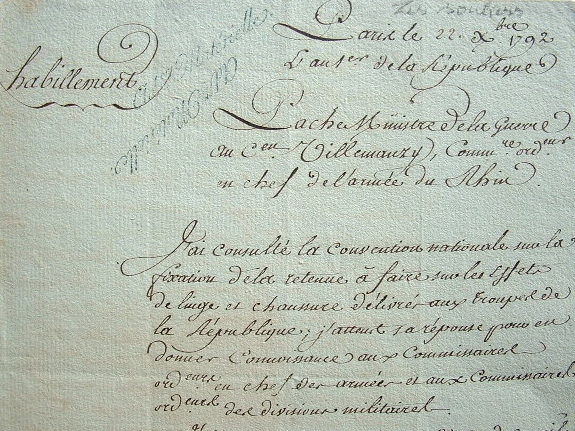 Les souliers
Paris le 22. Xbre 1792
L'an 1er de la République
habillement
Pache Ministre de la Guerre
au Cen Villemanzy, Commre ordeur
en chef de l'armée du Rhin.
J'ai consulté la convention nationale sur la
fixation de la retenue à faire sur les Effets
de linge et chaussure délivrés aux troupes de
la République; j'attens sa réponse pour en
donner Connoissance aux Commissaires
ordeurs en chef des armées et aux Commissaires
ordeurs des divisions militaires.